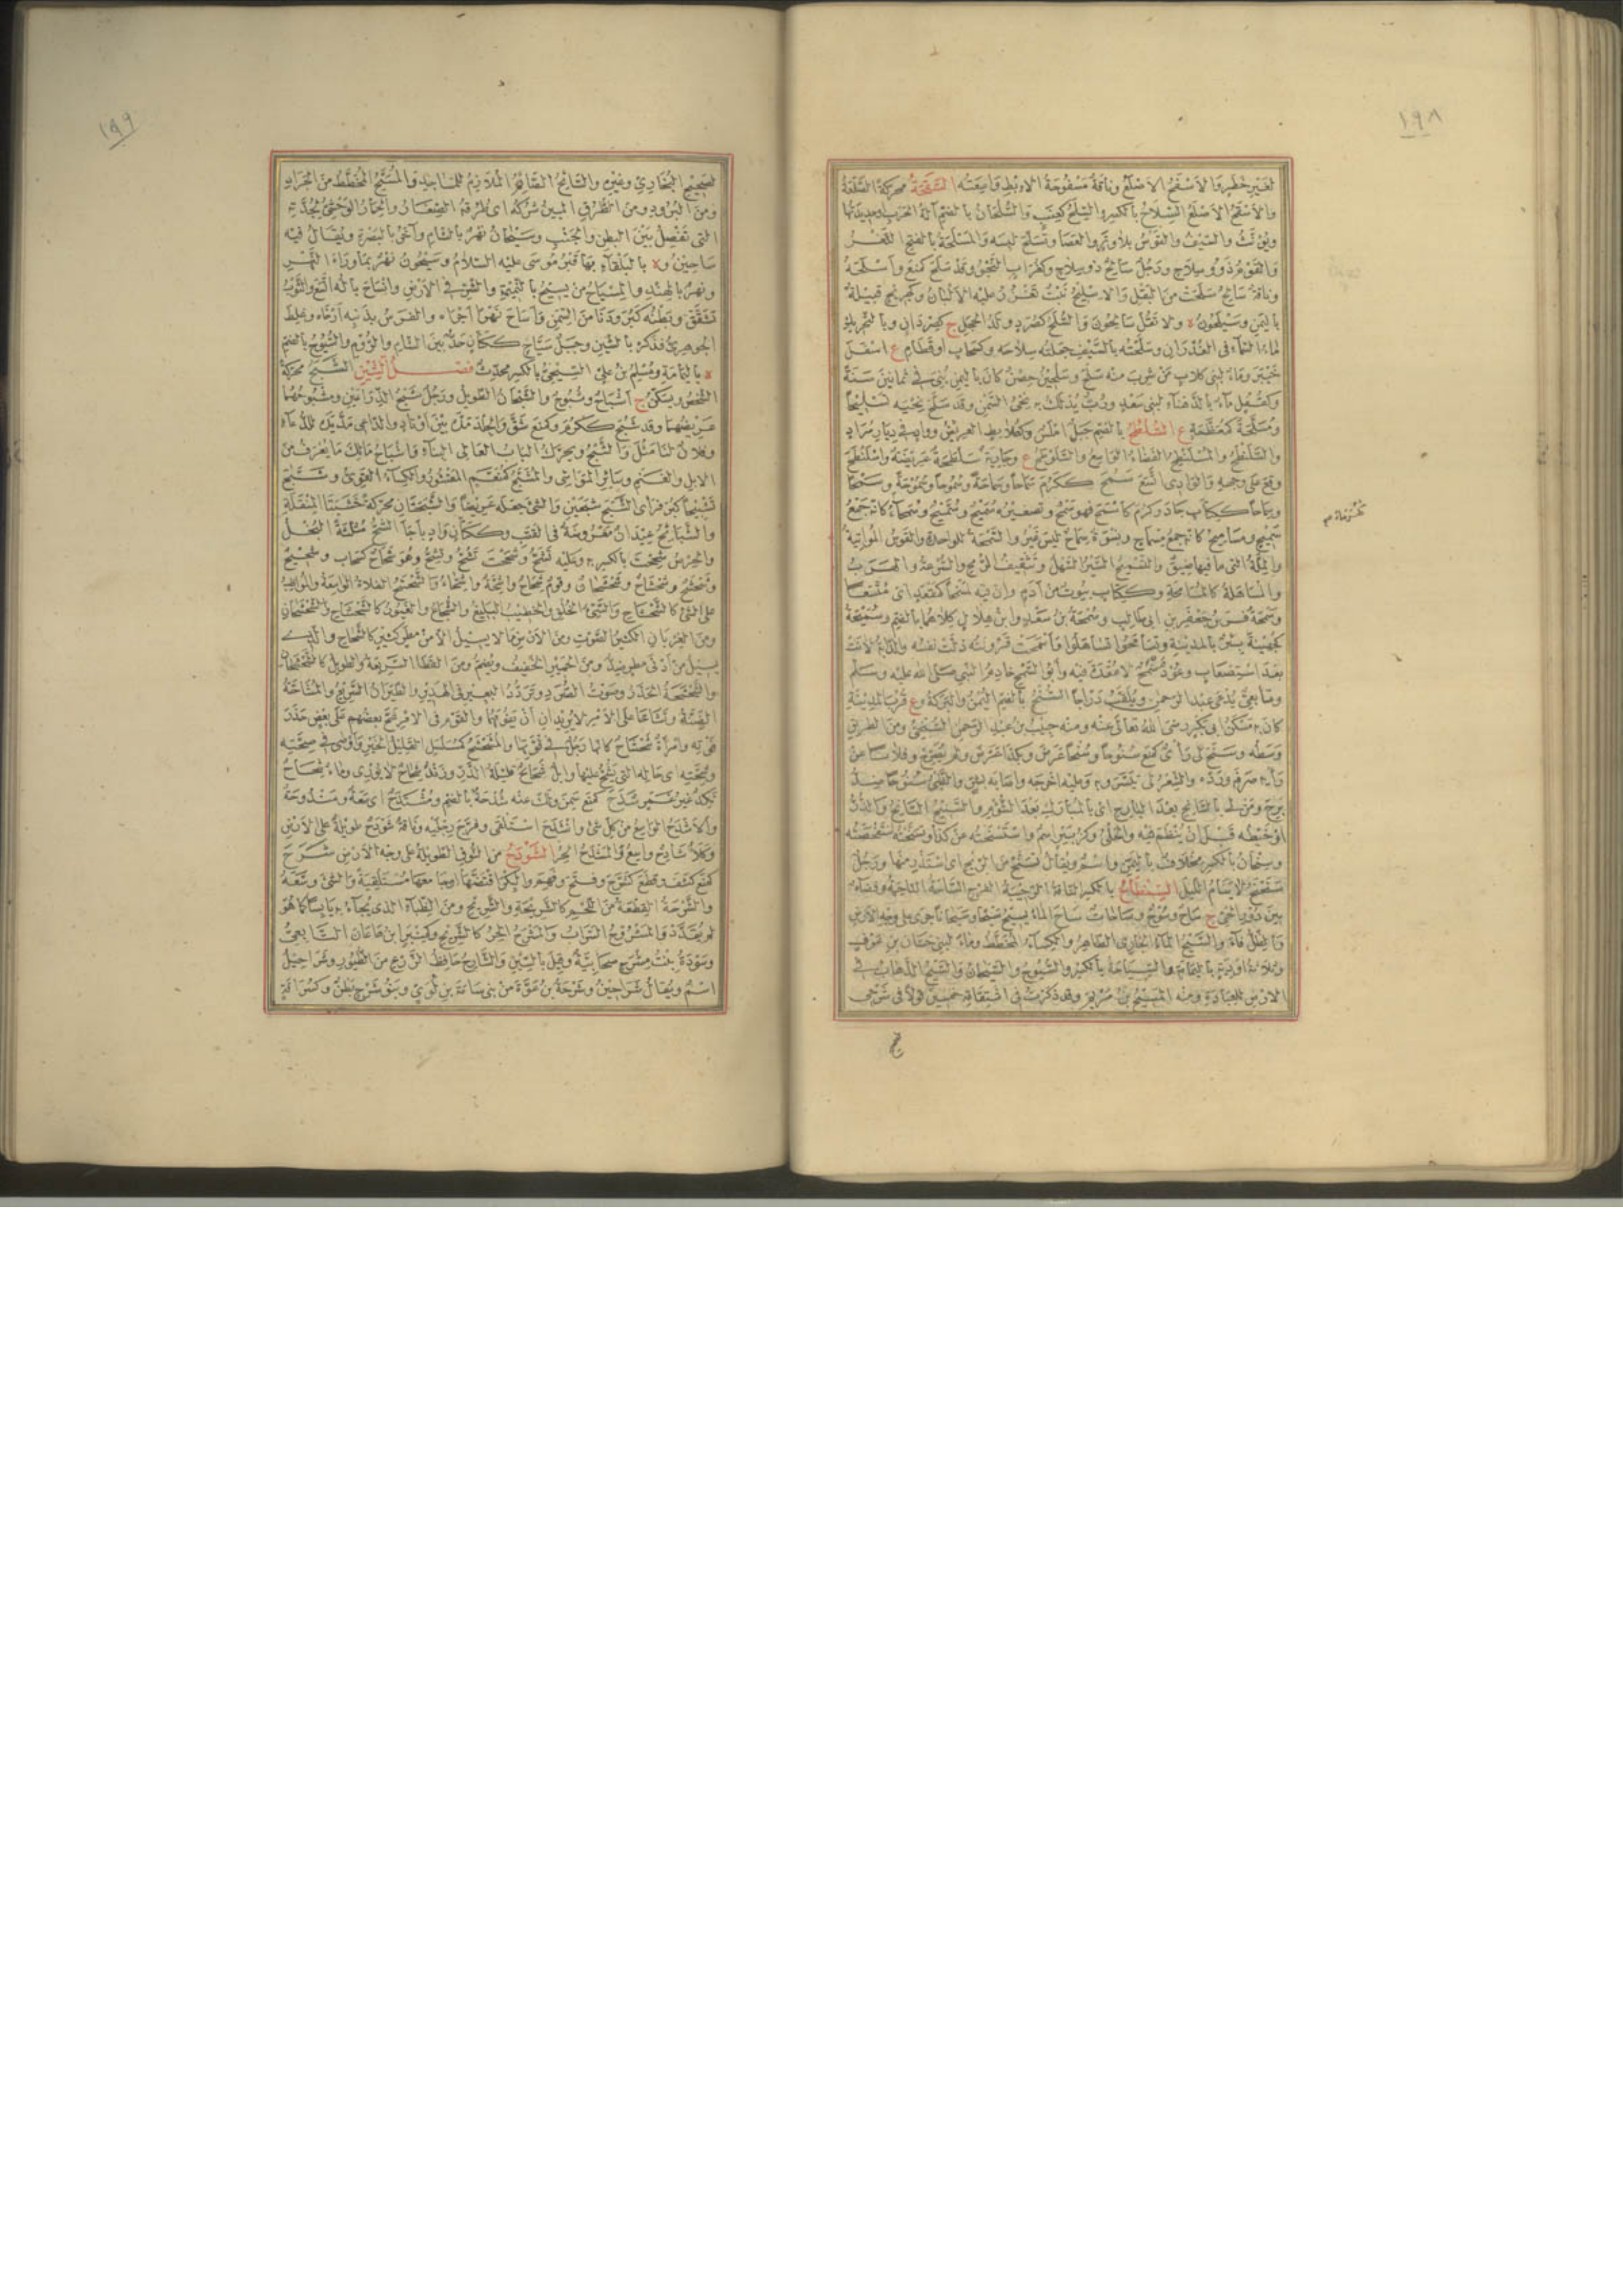 ١٩٨
لغير خطر والاسفح الاصلع وناقة مسفوحة الابط واسعته السقحة محركة الصلعة
والاسقح الاصلع السلاح بالكسر والسلح كعنب والسلحان بالضم آلة الحرب او حديدتها
ويؤنث والسيف والقوس بلا وتر والعصا وتسلح لبسه والمسلحة بالفتح الثغر
والقوم ذوو سلاح ورجل سالح ذو سلاح وكغراب النجو وقد سلح كمنع واسلحه
وناقة سالح سلحت من البقل والاسليح نبت تغزر عليه الالبان وكجريح قبيلة
باليمن وسيلحون ة ولا تقل سالحون والسلح كصرد ولد الحجل ج كصردان وبالتحريك
ماء السماء في الغدران وسلحته بالسيف جعلته سلاحه وكسحاب او قطام ع اسفل
خيبر وماء لبني كلاب من شرب منه سلح وسلحين حصن كان باليمن بني في ثمانين سنة
وكقفل ماء بالدهناء لبني سعد ورب يدلك به نحي السمن وقد سلح نحيه تسليحا
ومسلحة كمعظمة ع السلطح بالضم جبل املس وكعلابط العريض وواد في ديار مراد
والسلنطح والمسلنطح الفضاء الواسع والسلوطح ع وجارية سلاطحة عريضة واسلنطح
وقع على وجهه والوادي اتسع سمح ككرم سماحا وسماحة وسموحا وسموحة وسمحا
وسماحا ككتاب جاد وكرم كاسمح فهو سمح وتصغيره سميح وسميح وسمحاء كانه جمع
سميح ومساميح كانه جمع مسماح ونسوة سماح ليس غير والسمحة للواحدة والقوس المواتية
والملة التي ما فيها ضيق والتسميح السير السهل وتثقيف الرمح والسرعة والهرب
والمساهلة كالمسامحة وككتاب بيوت من ادم وان فيه لمسمحا كمقعد اي متسعا
وسمحة فرس جعفر بن ابي طالب وسمحة بن سعد وابن هلال كلاهما بالضم وسميحة
كجهينة بئر بالمدينة وتسامحوا تساهلوا واسمحت قرونته ذلت نفسه والدابة لانت
بعد استصعاب وعود سمح لا عقدة فيه وابو السمح خادم النبي صلى الله عليه وسلم
وتابعي يدعى عبد الرحمن ويلقب دراجا السنح بالضم اليمن والبركة وع قرب المدينة
كان به مسكن ابي بكر رضي الله تعالى عنه ومنه خبيب بن عبد الرحمن السنحي ومن الطريق
وسطه وسنح لي رأي كمنع سنوحا وسنحا عرض وبكذا عرض ولم يصرح وفلانا عن
رأيه صرفه ورده والشعر لي تيسر وبه وعليه احرجه واصابه بشر والظبي سنوحا ضد
برح ومن لي بالسانح بعد البارح اي بالمبارك بعد الشؤم والسنيح السانح والدر
او خيطه قبل ان ينظم فيه والحلي وكزبير اسم واستسنحته عن كذا وتسنحته استفحصته
وسنحان بالكسر مخلاف باليمن واسم ويقال تسنح من الريح اي استذر منها ورجل
سنحنح لا ينام الليل السنطاح بالكسر الناقة الرحيبة الفرج الساحة الناحية وفضاء
بين دور الحي ج ساح وسوح وساحات ساح الماء يسيح سيحا وسيحانا جرى على وجه الارض
والظل فاء والسيح الماء الجاري الظاهر والكساء المخطط وماء لبني حسان بن عوف
وثلاثة اودية باليمامة والسياحة بالكسر والسيوح والسيحان والسيح الذهاب في
الارض للعبادة ومنه المسيح بن مريم وقد ذكرت في اشتقاقه خمسين قولا في شرحي
١٩٩
لصحيح البخاري وغيره والسائح الصائم الملازم للمساجد والمسيح المخطط من الجراد
ومن البرود ومن الطرق المبين شركه اي طرقه الصغار والحمار الوحشي لجدته
التي تفصل بين البطن والجنب وسيحان نهر بالشام وآخر بالبصرة ويقال فيه
ساحين وة بالبلقاء بها قبر موسى عليه السلام وسيحون نهر بما وراء النهر
ونهر بالهند والمسياح من يسيح بالنميمة والشر في الارض وانساح باله اتسع والثوب
تشقق وبطنه كبر ودنا من السمن واساح نهرا اجراه والفرس بذنبه ارخاه وغلط
الجوهري فذكره بالشين وجبل سياح ككتان حد بين الشام والروم والسيوح بالضم
ة باليمامة ومسلم بن علي السيحي بالكسر محدث فصل الشين الشبح محركة
الشخص ويسكن ج اشباح وشبوح والشبحان الطويل ورجل شبح الذراعين ومشبوحهما
عريضهما وقد شبح ككرم وكمنع شق والجلد مده بين اوتاد والداعي مد يده للدعاء
وفلان لنا مثل والشبح ويحرك الباب العالي البناء واشباح مالك ما يعرف من
الابل والغنم وسائر المواشي والمشبح كمعظم المقشور والكساء القوي وشبح
تشبيحا كبر فرأى الشبح شبحين والشيء جعله عريضا والشبحتان محركة خشبتا المنقلة
والشبائح عيدان معروضة في القتب وككتان واد باجأ الشح مثلثة البخل
والحرص شححت بالكسر به وعليه تشح وشححت تشح وتشح وهو شحاح كسحاب وشحيح
وشحشح وشحشاح وشحشحان وقوم شحاح واشحة واشحاء والشحشح الفلاة الواسعة والمواظب
على الشيء كالشحشاح والسيئ الخلق والخطيب البليغ والشجاع والغيور كالشحشاح والشحشحان
ومن الغربان الكثير الصوت ومن الارض ما لا يسيل الا من مطر كثير كالشحاح والذي
يسيل من ادنى مطر ضد ومن الحمير الخفيف ويضم ومن القطا السريعة والطويل كالشحشحان
والشحشحة الحذر وصوت الصرد وتردد البعير في الهدير والطيران السريع والمشاحة
الضنة وتشاحا على الامر لا يريدان ان يفوتهما والقوم في الامر شح بعضهم على بعض حذر
فوته وامرأة شحشاح كانها رجل في قوتها والمشحشح كمسلسل القليل الخير واوصى في صحته
وشحته اي حاله التي يشح عليها وابل شحائح قليلة الدر وزند شحاح لا يوري وماء شحاح
نكد غير غمر شدح كمنع سمن ولك عنه شدحة بالضم ومشتدح اي سعة ومندوحة
والاشدح الواسع من كل شيء وانشدح استلقى وفرج رجليه وناقة شودح طويلة على الارض
وكلأ شادح واسع والمشدح الحر الشوذح من النوق الطويلة على وجه الارض شرح
كمنع كشف وقطع كشرح وفتح وفهم والبكر افتضها او جامعها مستلقية والشيء وسعه
والشرحة القطعة من اللحم كالشريحة والشريح ومن الظباء الذي يجاء به يابسا كما هو
لم يقدد والمشروح السراب والمشرح الحر كالشريح وكمنبر ابن عاهان التابعي
وسودة بنت مشرح صحابية وقيل بالسين والشارح حافظ الزرع من الطيور وشراحيل
اسم ويقال شراحين وشرحة بن عوة من بني سامة بن لؤي وبنو شرح بطن وكسراقة